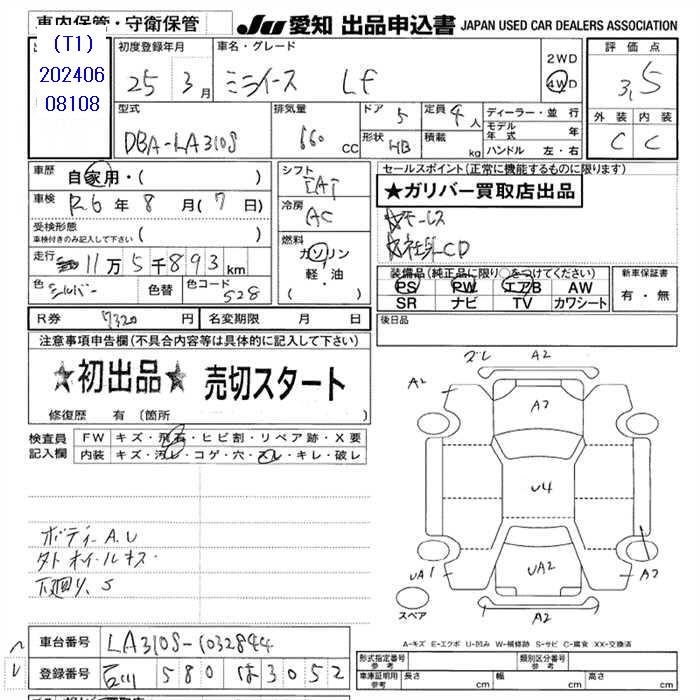 車内保管・守衛保管
JU 愛知 出品申込書 JAPAN USED CAR DEALERS ASSOCIATION
(T1)
202406
08108
初度登録年月 車名・グレード 評価点
25 3月 ミライース Lf 2WD 4WD 3.5
型式 排気量 ドア 5 定員 4人 ディーラー・並行 外装 内装
DBA-LA310S 660cc 形状 HB 積載 kg モデル年式 年 C C
ハンドル 左・右
車歴 自家用・( ) シフト セールスポイント(正常に機能するものに限ります)
車検 R6年8月(7日) ★ガリバー買取店出品
受検形態 冷房 AC
車検付きのみ記入して下さい ( )
走行 11万5千893km 燃料 ガソリン 軽・油 ( )
装備品(純正品に限り○をつけてください) 新車保証書
色 シルバー 色替 色コード S28 PS PW エアB AW 有・無
SR ナビ TV カワシート
R券 7320円 名変期限 月 日 後日品
注意事項申告欄(不具合内容等は具体的に記入して下さい)
★初出品★ 売切スタート
修復歴 有(箇所
検査員 FW キズ・飛石・ヒビ割・リペア跡・X要
記入欄 内装 キズ・汚レ・コゲ・穴・スレ・キレ・破レ
ズレ A2
A2
A2
U4
ボディーA.U
タトホイールキズ
下廻り、S
UA1 UA2 A2
スペア A2
A-キズ E-エクボ U-凹み W-補修跡 S-サビ C-腐食 XX-交換済
車台番号 LA310S-1032844
登録番号 石川 580 は 3052
形式指定番号 参考 類別区分番号 参考
車庫証明用 参考 長さ cm 幅 cm 高さ cm